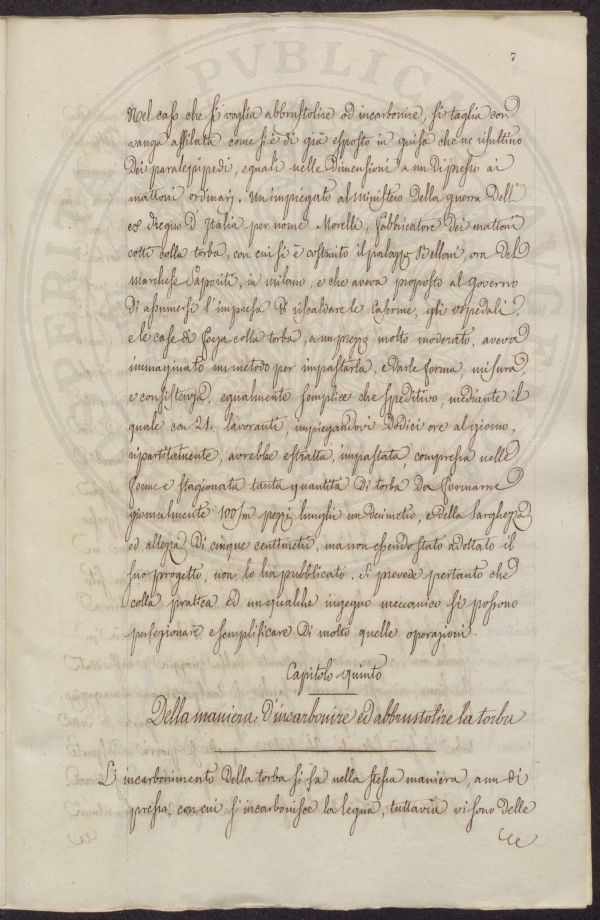 7
Nel caso che si voglia abbrustolire od incarbonire, si taglia con
vanga affilata come si è di già esposto in guisa che ne risultino
dei paralepipedi, eguali nelle dimensioni a un di presso ai
mattoni ordinarj. Un impiegato al ministero della guerra dell'
ex Regno d'Italia per nome Morelli, fabbricatore dei mattoni
cotti colla torba, con cui si è costruito il palazzo Belloni, ora del
marchese Saporiti, in milano, e che aveva proposto al governo
di assumersi l'impresa di riscaldare le Caserme, gli ospedali,
e le case di forza colla torba, a un prezzo molto moderato, aveva
immaginato un metodo per impastarla, e darle forma, misura,
e consistenza, egualmente semplice che speditivo, mediante il
quale con 21. lavoranti, impiegandovi dodici ore al giorno,
ripartitamente, avrebbe estratta, impastata, compressa nelle
forme e stagionata tanta quantità di torba da formarne
giornalmente 100/m pezzi lunghi un decimetro, e della larghezza
ed altezza di cinque centimetri, ma non essendo stato adottato il
suo progetto, non lo ha pubblicato. Si prevede pertanto che
colla pratica ed un qualche ingegno meccanico si possono
perfezionare e semplificare di molto quelle operazioni.
Capitolo quinto
Della maniera d'incarbonire ed abbrustolire la torba
L'incarbonimento della torba si fa nella stessa maniera, a un di
presso, con cui si incarbonisce la legna, tuttavia vi sono delle
PVBLICA AVGE PERVSIA